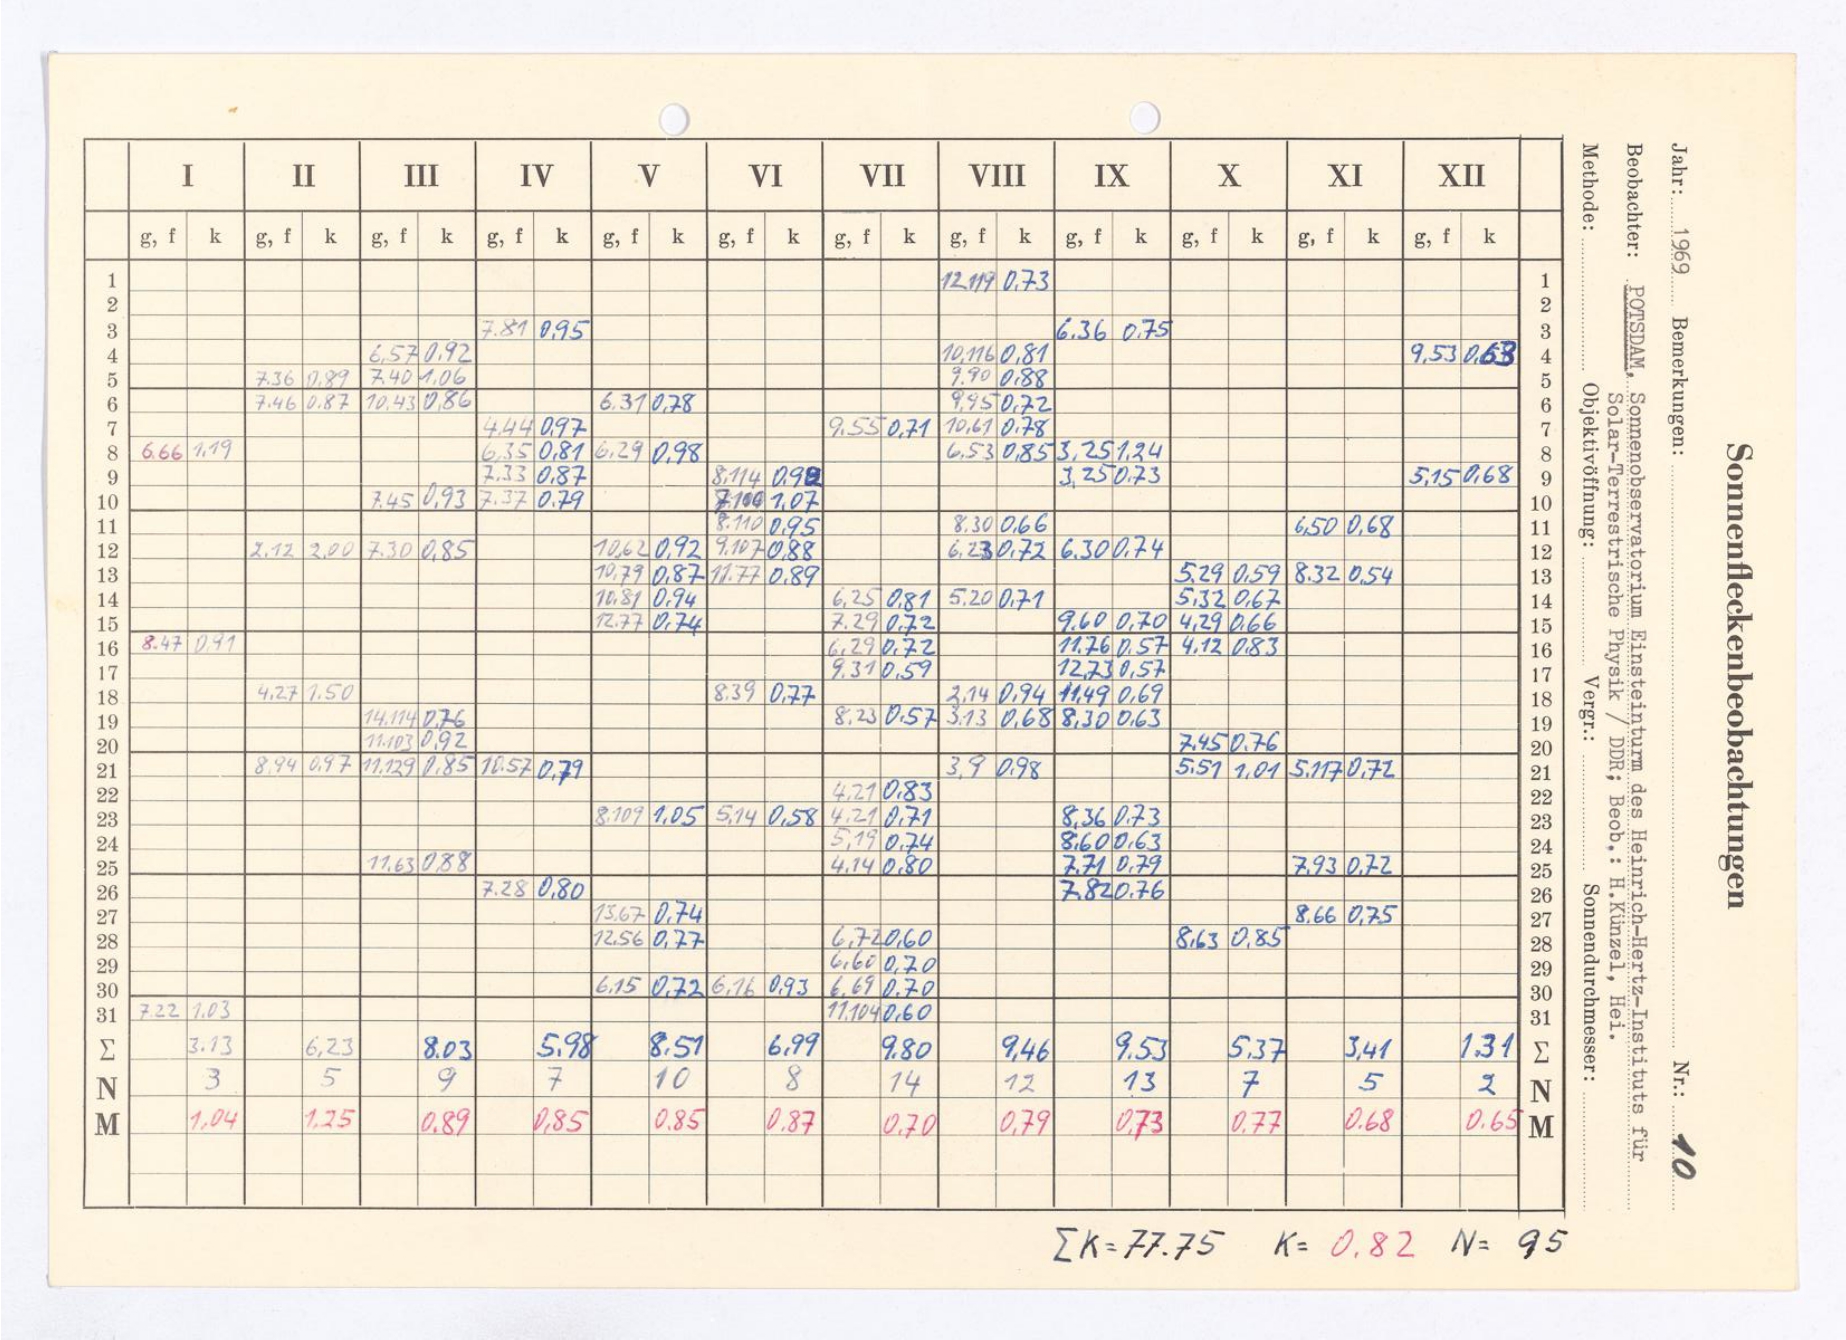 Sonnenfleckenbeobachtungen
Jahr: 1969 Bemerkungen: Nr.: 10
Beobachter: POTSDAM, Sonnenobservatorium Einsteinturm des Heinrich-Hertz-Instituts für
Solar-Terrestrische Physik / DDR; Beob.: H.Künzel, Hei.
Methode: Objektivöffnung: Vergr.: Sonnendurchmesser:
I II III IV V VI VII VIII IX X XI XII
g, f k g, f k g, f k g, f k g, f k g, f k g, f k g, f k g, f k g, f k g, f k g, f k
1 12,119 0,73 1
2 2
3 7.81 0,95 6.36 0.75 3
4 6,57 0.92 10,116 0,81 9,53 0,63 4
5 7.36 0,89 7.40 1,06 9.90 0,88 5
6 7.46 0.87 10,43 0,86 6.31 0,78 9,95 0,72 6
7 4.44 0,97 9.55 0,71 10,61 0.78 7
8 6.66 1,19 6,35 0,81 6,29 0,98 6.53 0,85 3,25 1,24 8
9 7.33 0,87 8,114 0.92 3,25 0.73 9 5,15 0,68
10 7.45 0,93 7.37 0.79 7.100 1,07 10
11 8.110 0,95 8.30 0,66 6,50 0,68 11
12 2.12 2,00 7.30 0,85 10,62 0,92 9.107 0,88 6,23 0,72 6.30 0,74 12
13 10,79 0,87 11.77 0,89 5.29 0,59 8.32 0,54 13
14 10.81 0,94 6,25 0,81 5.20 0,71 5,32 0,67 14
15 12.77 0,74 7.29 0,72 9.60 0,70 4,29 0,66 15
16 8.47 0,91 6,29 0,72 11.76 0,57 4.12 0,83 16
17 9.31 0,59 12,73 0,57 17
18 4.27 1.50 8.39 0,77 2,14 0,94 11,49 0,69 18
19 14.114 0,76 8,23 0.57 3.13 0,68 8,30 0.63 19
20 11.103 0,92 7.45 0.76 20
21 8,94 0.97 11.129 0,85 10.57 0,79 3,9 0.98 5.51 1,01 5,117 0,72 21
22 4.21 0,83 22
23 8.109 1,05 5,14 0,58 4.21 0,71 8,36 0.73 23
24 5,19 0,74 8.60 0,63 24
25 11.63 0,88 4.14 0,80 7.71 0,79 7,93 0,72 25
26 7.28 0,80 7.82 0.76 26
27 13.67 0,74 8.66 0,75 27
28 12.56 0,77 6,72 0,60 8,63 0,85 28
29 6,60 0,70 29
30 6,15 0,72 6,16 0,93 6,69 0,70 30
31 7.22 1.03 11.104 0,60 31
Σ 3.13 6,23 8.03 5,98 8.51 6,99 9,80 9,46 9,53 5,37 3,41 1,31 Σ
N 3 5 9 7 10 8 14 12 13 7 5 2 N
M 1,04 1,25 0.89 0,85 0.85 0.87 0,70 0,79 0,73 0.77 0.68 0.65 M
ΣK=77.75 K= 0,82 N= 95